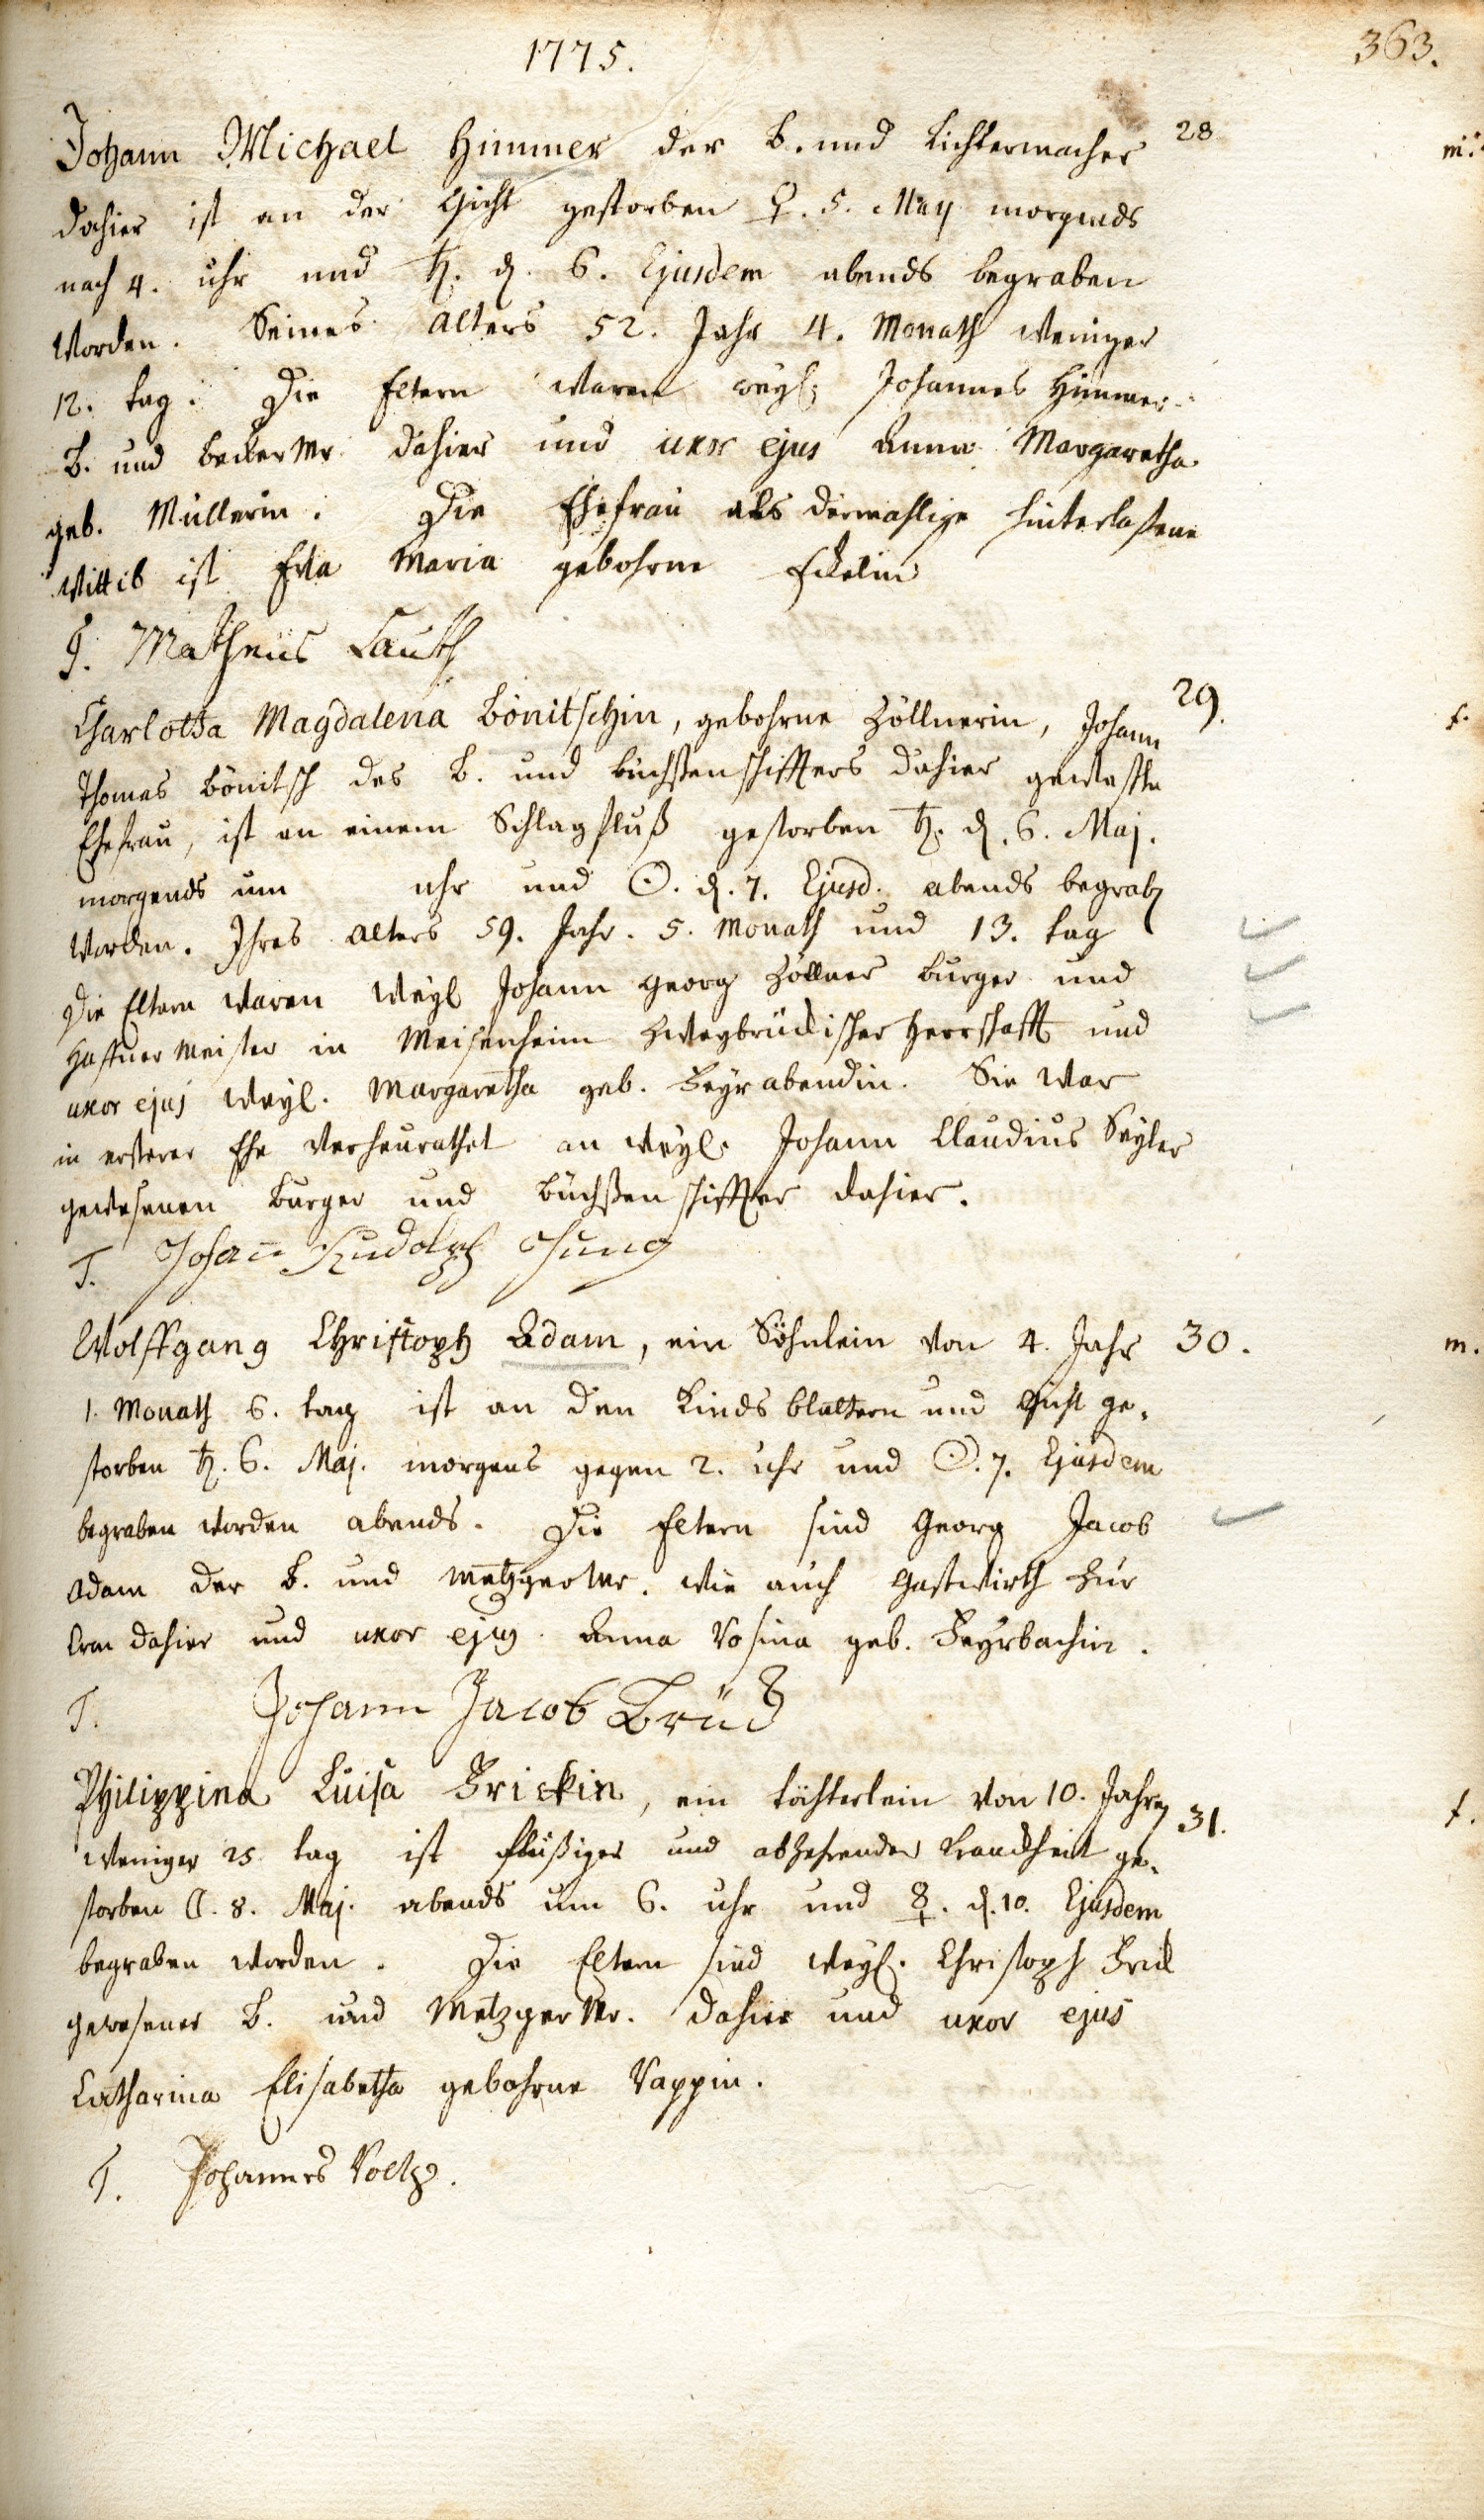 1775.
363.
Johann Michael Himmer der B. und Lichtermacher 28 m:
dahier ist an der Gicht gestorben ♀. 5. May morgends
nach 4. uhr und ♄. d. 6. Ejusdem abends begraben
worden. Seines alters 52. Jahr 4. Monath weniger
12. tag. Die Eltern waren weyl. Johannes Himmer
B. und becker Mr. dahier und uxor ejus Anna Margaretha
geb. Müllerin. Die Ehefrau als dermahlige hinterlaßene
Wittib ist Eva Maria gebohrne Eckelin
T. Matheus Lauth
Charlotta Magdalena Bönitschin, gebohrne Zöllnerin, Johann 29. f.
Thomas Bönitsch des B. und büchßenschiffters dahier geweste
Ehefrau, ist an einem Schlagfluß gestorben ♄. d. 6. Maj.
morgends um uhr und ☉. d. 7. Ejusd. abends begrab
worden. Ihres alters 59. Jahr. 5. Monath und 13. tag
Die Eltern waren weyl Johann Georg Zöllner burger und
Haffner Meister in Meisenheim Zweybrückischer Herrschafft und
uxor ejus weyl. Margaretha geb. Feyrabendin. Sie war
in ersterer Ehe verheurathet an weyl. Johann Claudius Seyler
gewesenen burger und büchßenschiffter dahier.
T. Johan Rudolph Jung
Wolffgang Christoph Adam, ein Söhnlein von 4. Jahr 30. m.
1. Monath 6. tag ist an den Kinds blattern und Gicht ge-
storben ♄. 6. Maj. morgens gegen 2. uhr und ☉. 7. Ejusdem
begraben worden abends. Die Eltern sind Georg Jacob
Adam der B. und Metzger Mr. wie auch Gastwirth zur
Cron dahier und uxor ejus Anna Rosina geb. Feyrbachin.
T. Johann Jacob Brück
Philippina Luisa Frickin, ein töchterlein von 10. Jahren 31. f.
weniger 25 tag ist flüßiger und abzehrender Kranckheit ge-
storben ☾. 8. Maj. abends um 6. uhr und ☿. d. 10. Ejusdem
begraben worden. Die Eltern sind weyl. Christoph Frick
gewesener B. und Metzger Mr. dahier und uxor ejus
Catharina Elisabetha gebohrne Rappin.
T. Johannes Voltz.